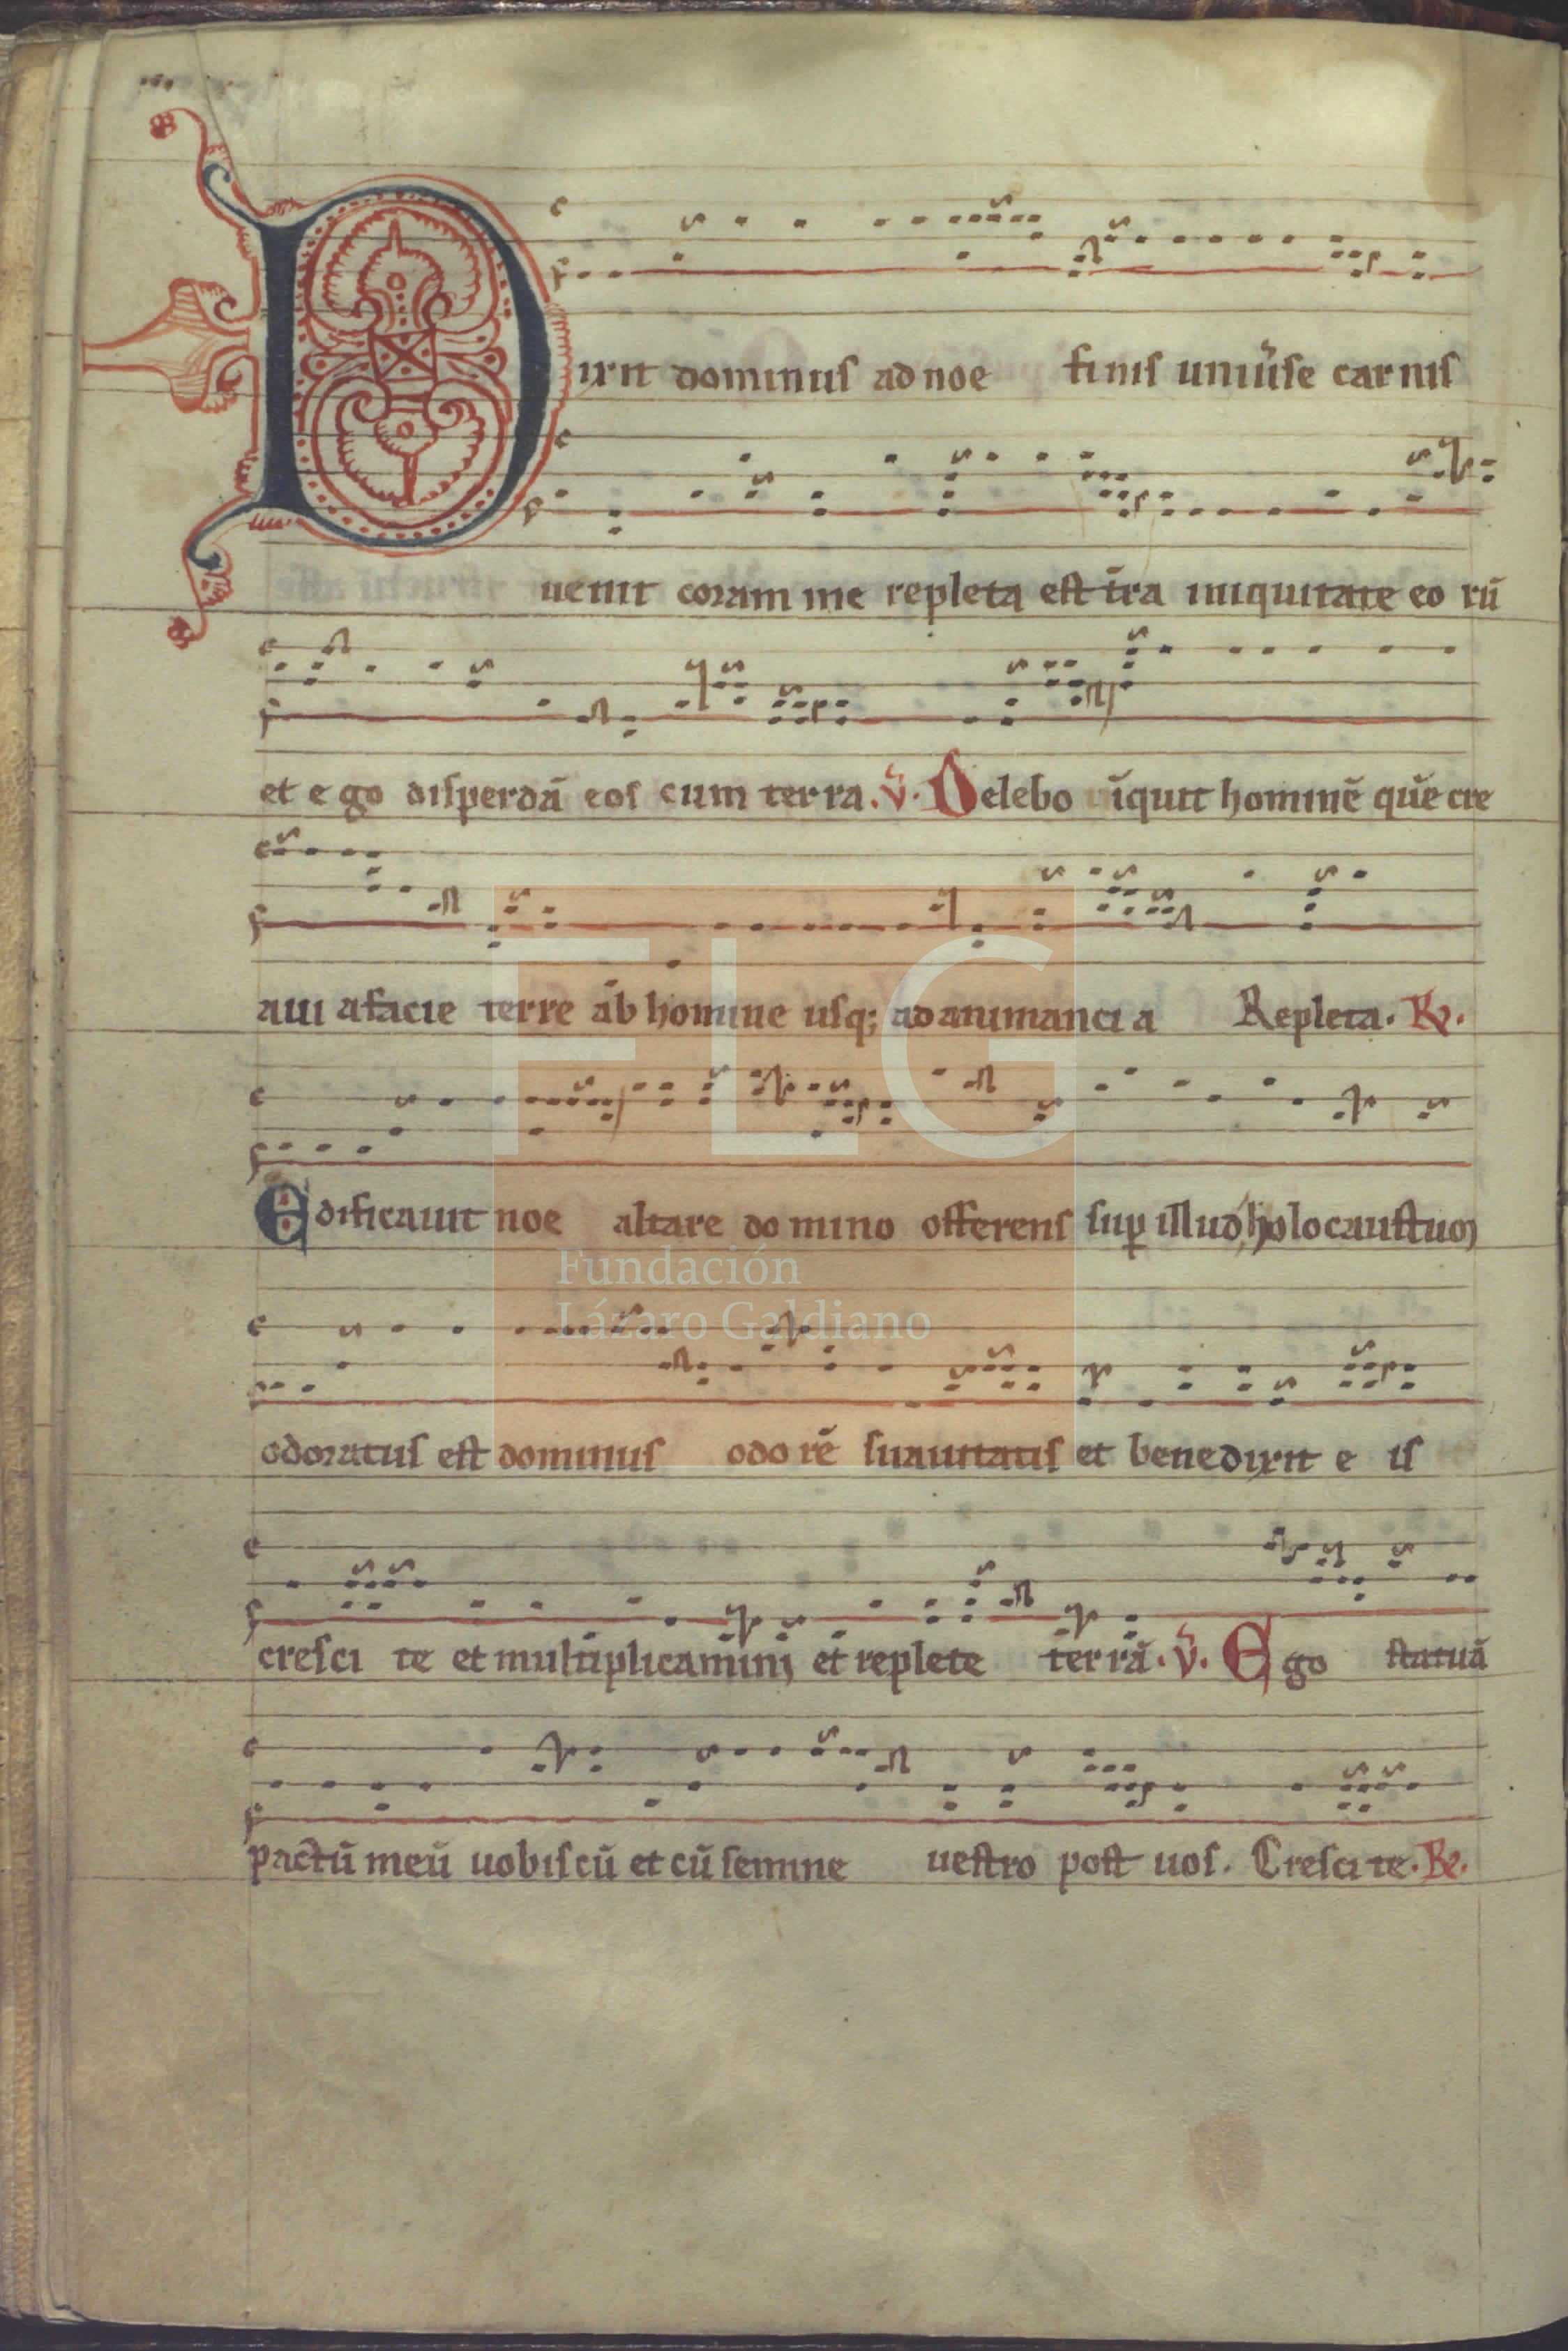 Dixit dominus ad noe finis uniũse carnis
uenit coram me repleta est t̃ra iniquitate eo rũ
et e go disperdã eos cum ter ra. ṽ. Delebo inquit hominẽ quẽ cre
aui a facie terre ab homine usq; ad animanci a Repleta. R̃.
Edificauit noe altare do mino offerens sup illud holocaustum
odoratus est dominus odo rẽ suauitatis et benedixit e is
cresci te et multiplicamini et replete ter rã. ṽ. Ego statuã
pactũ meũ uobiscũ et cũ semine uestro post uos. Cresci te. R̃.
FLG
Fundación
Lázaro Galdiano